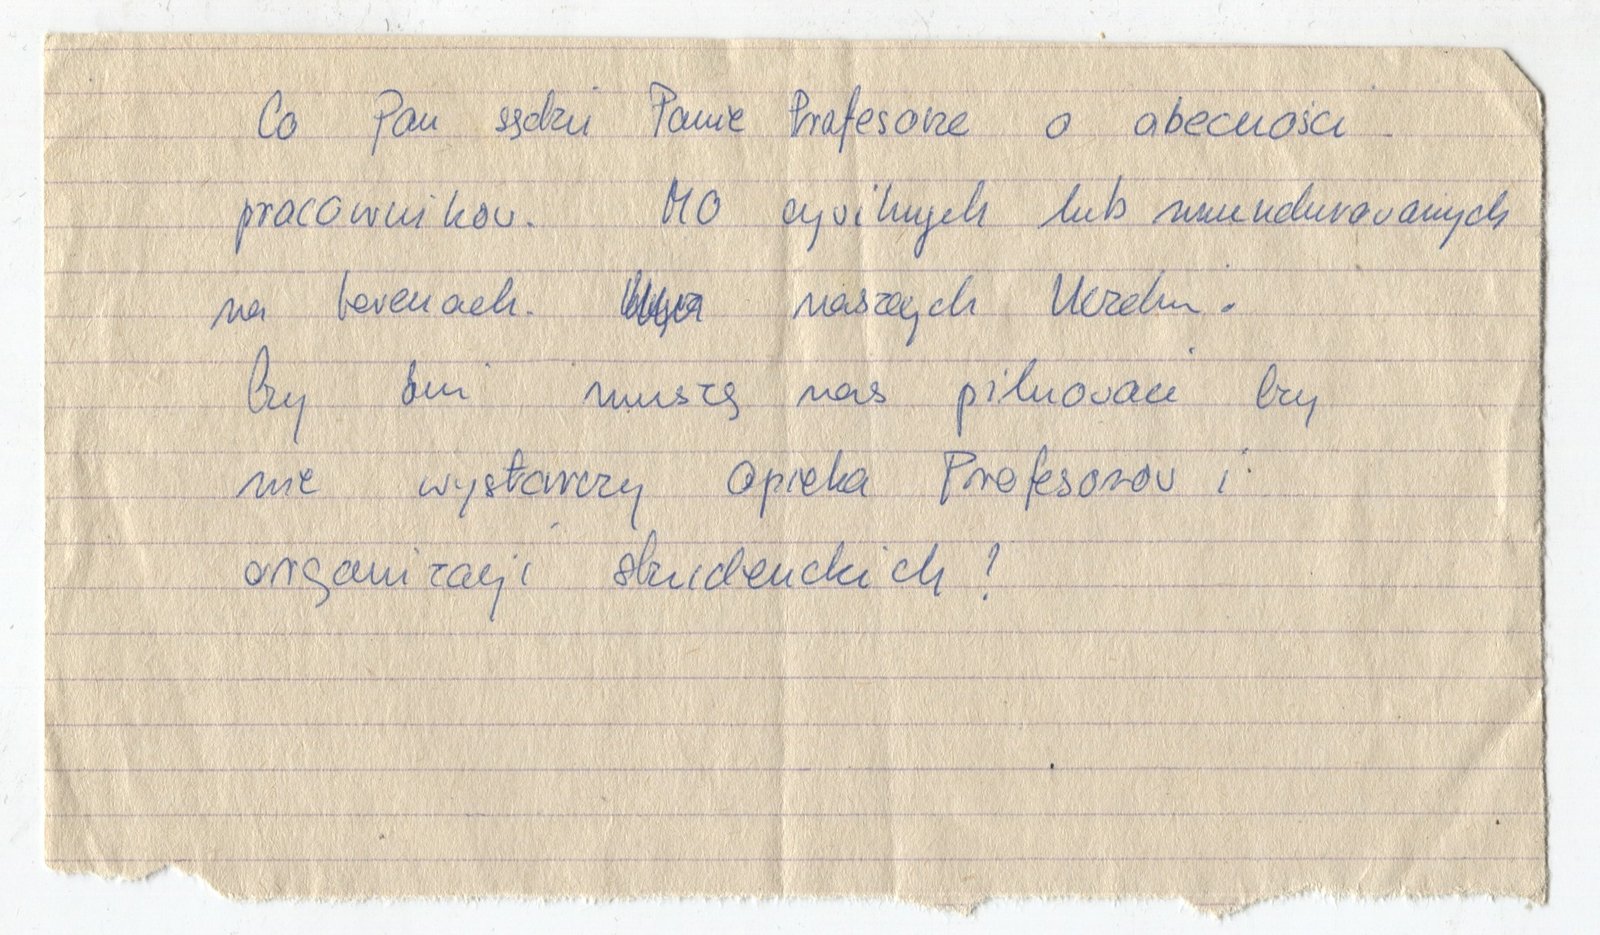 Co Pan sądzi Panie Profesorze o obecności
pracownikow. MO cywilnych lub umundurowanych
na terenach. naszych Uczelni.
Czy oni muszą nas pilnować czy
nie wystarczy opieka Profesorow i
organizacji studenckich?